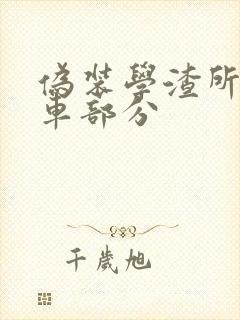 偽裝學渣所
車部分
千歲旭